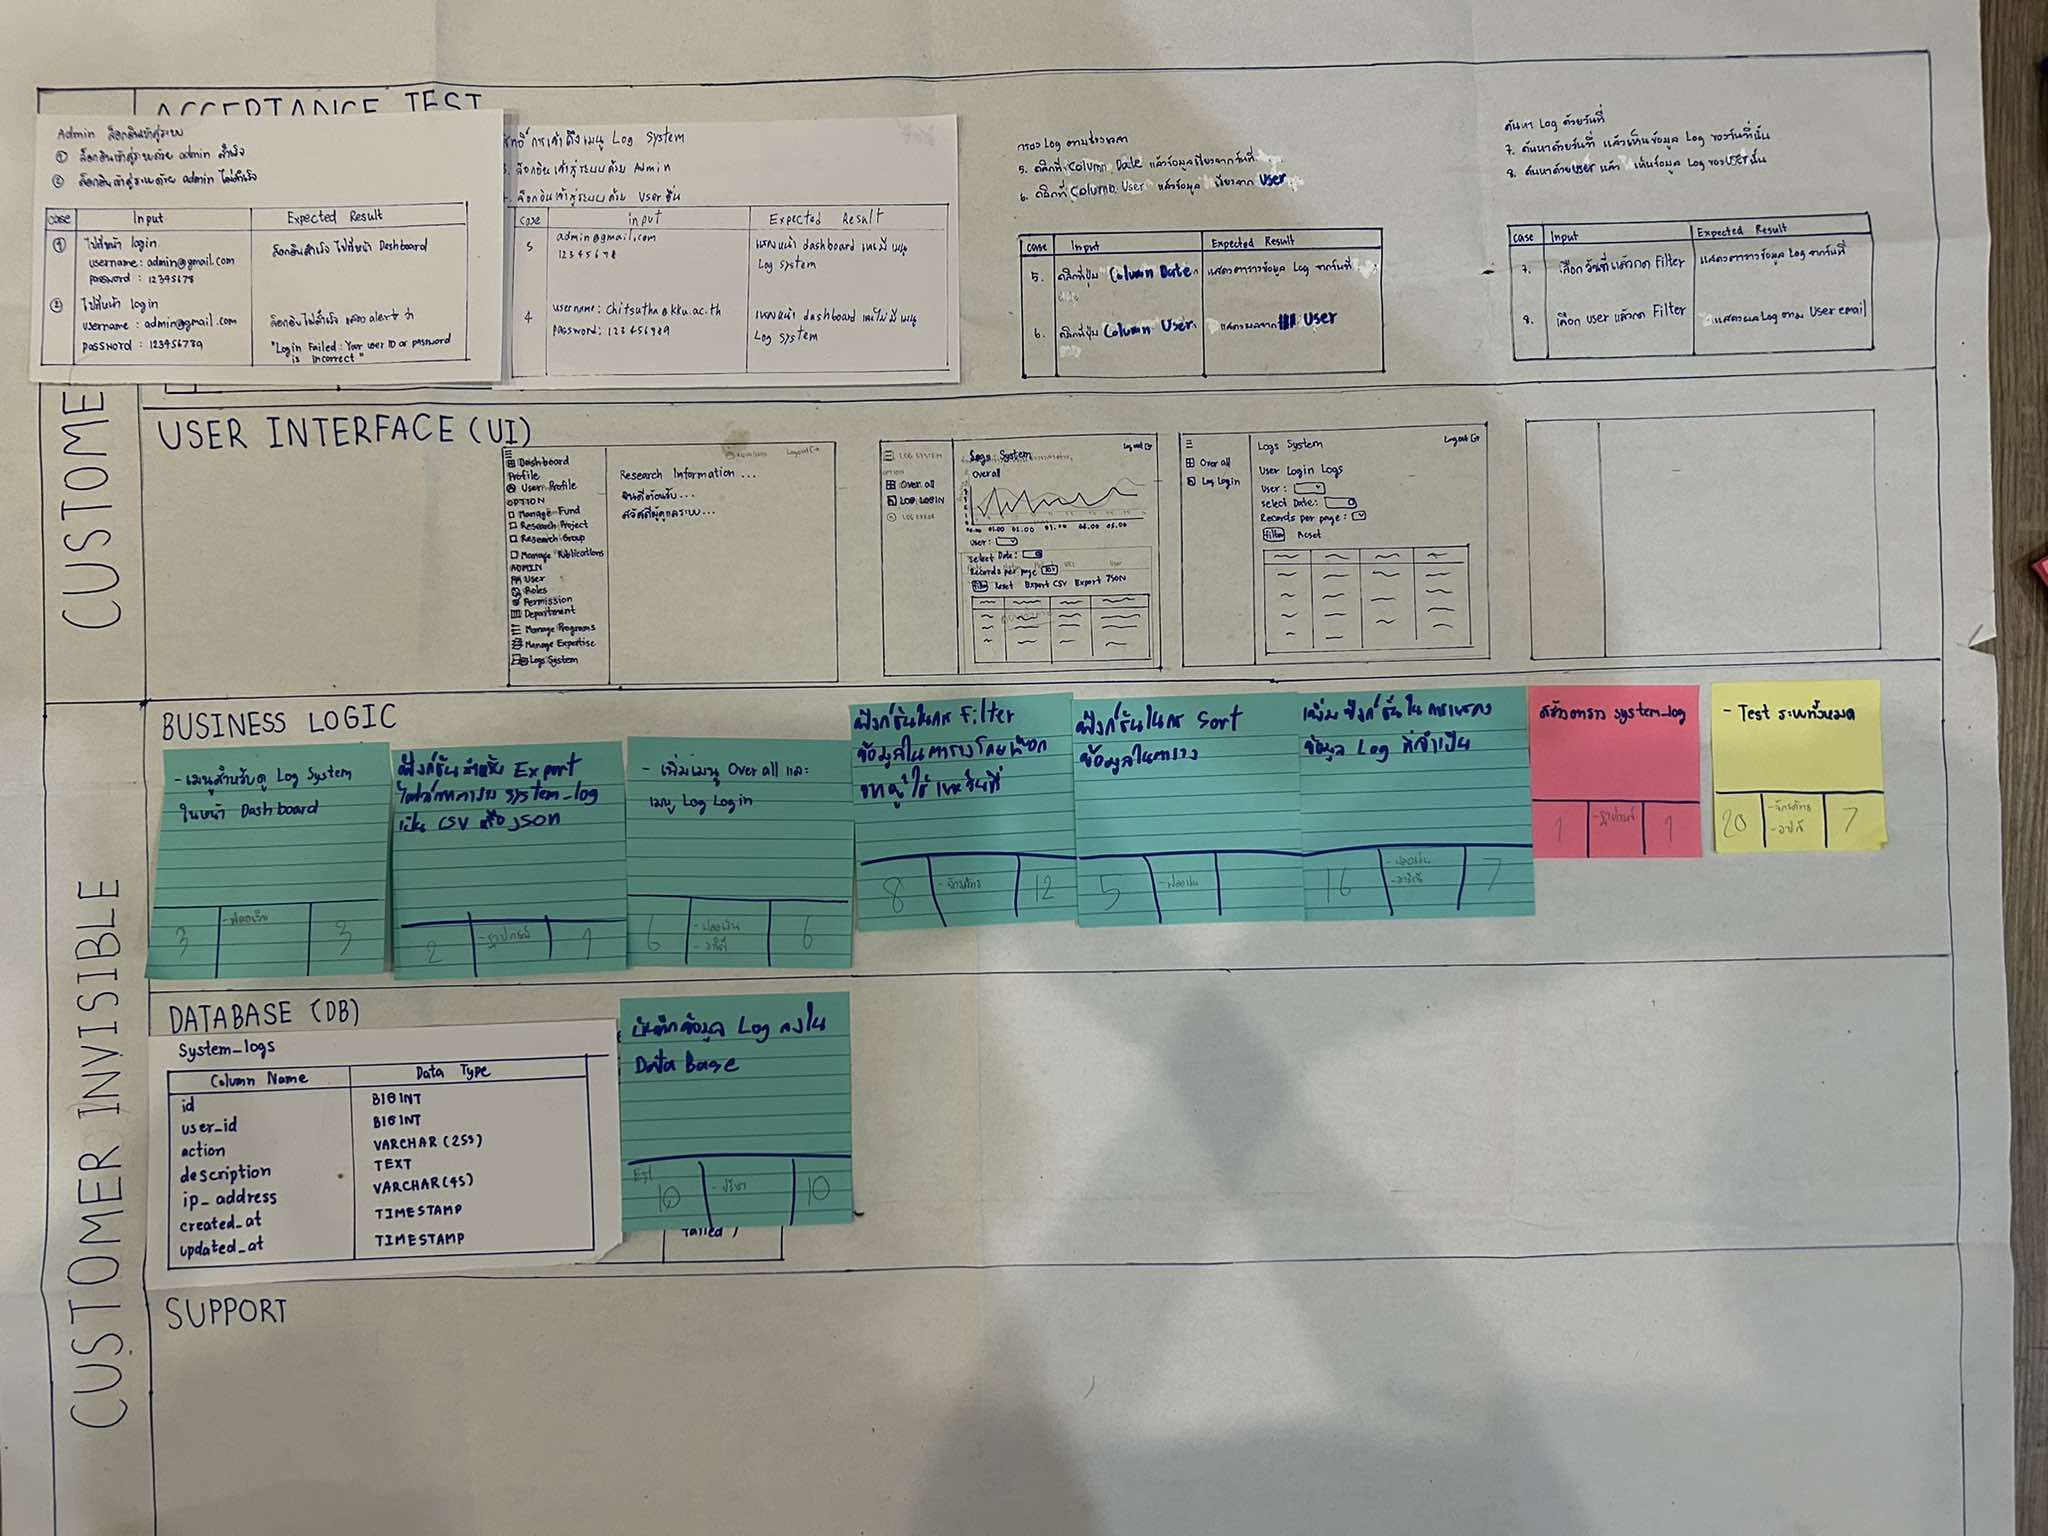 ACCEPTANCE TEST
Admin ล็อกอินเข้าสู่ระบบ
① ล็อกอินเข้าสู่ระบบด้วย admin สำเร็จ
② ล็อกอินเข้าสู่ระบบด้วย admin ไม่สำเร็จ
case Input Expected Result
① ไปที่หน้า login
username: admin@gmail.com
password : 12345678
ล็อกอินสำเร็จ ไปที่หน้า Dashboard
② ไปที่หน้า login
username : admin@gmail.com
password : 123456789
ล็อกอินไม่สำเร็จ แสดง alert ว่า
"Login Failed: Your user ID or password
is incorrect"
สิทธิ์การเข้าถึงเมนู Log System
3. ล็อกอินเข้าสู่ระบบด้วย Admin
ล็อกอินเข้าสู่ระบบด้วย User อื่น
case input Expected Result
3 admin@gmail.com
12345678
แสดงหน้า dashboard และมี เมนู
Log System
4 username: chitsutha@kku.ac.th
password: 123456989
แสดงหน้า dashboard และไม่มี เมนู
Log System
การดู Log ตามช่วงเวลา
5. คลิกที่ Column Date แล้วข้อมูลเรียงจากวันที่
6. คลิกที่ Column User แล้วข้อมูล เรียงจาก User
case Input Expected Result
5. คลิกที่ปุ่ม Column Date
แสดงตารางข้อมูล Log จากวันที่
6. คลิกที่ปุ่ม Column User
แสดงผลจาก User
ค้นหา Log ด้วยวันที่
7. ค้นหาด้วยวันที่ แล้วเห็นข้อมูล Log ของวันที่นั้น
8. ค้นหาด้วย User แล้ว เห็นข้อมูล Log ของ User นั้น
case Input Expected Result
7. เลือก วันที่ แล้วกด Filter
แสดงตารางข้อมูล Log จากวันที่
8. เลือก user แล้วกด Filter
แสดงผล Log ตาม User email
CUSTOME
USER INTERFACE (UI)
Dashboard
Profile
User Profile
OPTION
Manage Fund
Research Project
Research Group
Manage Publications
ADMIN
User
Roles
Permission
Department
Manage Programs
Manage Expertise
Logs System
Logout
Research Information ...
ยินดีต้อนรับ...
สวัสดีผู้ดูแลระบบ...
LOG SYSTEM
OPTION
Over all
LOG LOGIN
LOG ERROR
Logs System
Log out
Overall
01.00 02.00 03.00 04.00 05.00
User:
Select Date:
Records per page
Filter Reset Export CSV Export JSON
Over all
Log Login
Logs System
Logout
User Login Logs
User :
Select Date:
Records per page :
Filter Reset
CUSTOMER INVISIBLE
BUSINESS LOGIC
- เมนูสำหรับดู Log System
ในหน้า Dashboard
3 3
ฟังก์ชันสำหรับ Export
ไฟล์จากตาราง system_log
เป็น CSV หรือ JSON
2 1
- เพิ่มเมนู Over all และ
เมนู Log Login
6 6
ฟังก์ชันในการ Filter
ข้อมูลในตารางโดยเลือก
จากผู้ใช้ และวันที่
8 12
ฟังก์ชันในการ Sort
ข้อมูลในตาราง
5
เพิ่มฟังก์ชันในการแสดง
ข้อมูล Log ที่จำเป็น
16 7
สร้างตาราง system_log
1 1
- Test ระบบทั้งหมด
20 7
DATABASE (DB)
System_logs
Column Name Data Type
id BIGINT
user_id BIGINT
action VARCHAR (255)
description TEXT
ip_address VARCHAR(45)
created_at TIMESTAMP
updated_at TIMESTAMP
บันทึกข้อมูล Log ลงใน
Data Base
10 10
failed
SUPPORT